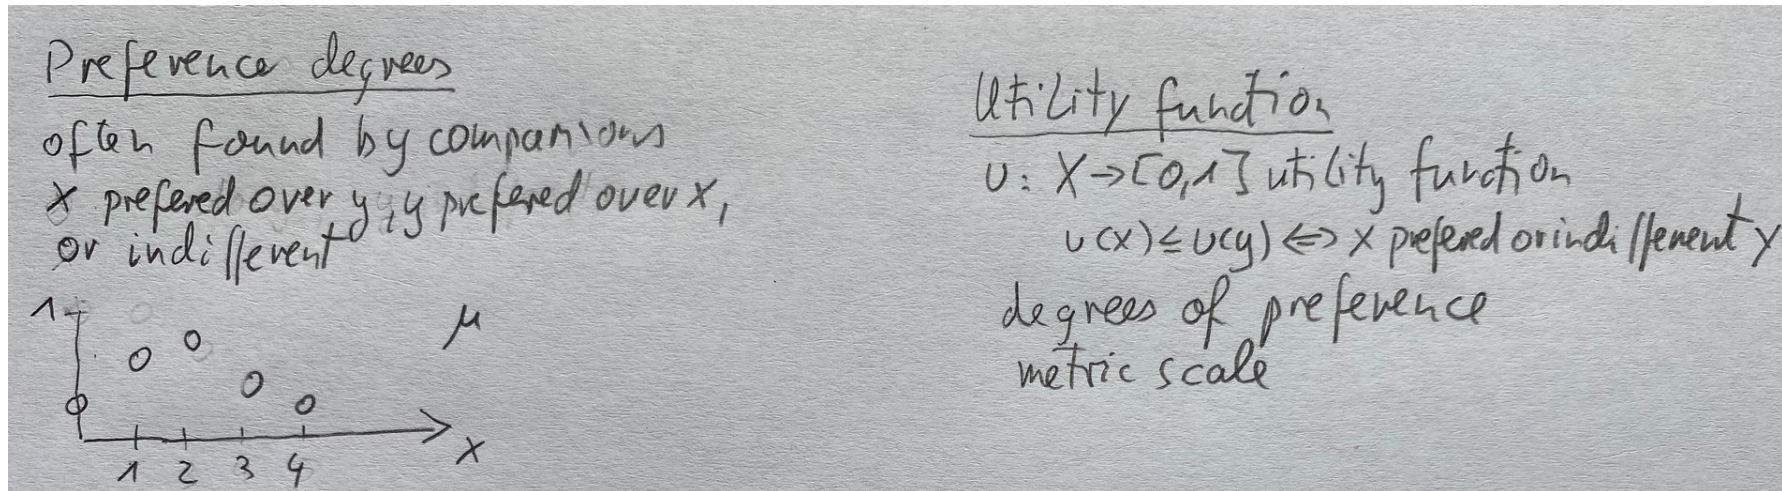 Preference degrees
often found by comparisons
x prefered over y, y prefered over x,
or indifferent
1
μ
x
1 2 3 4
Utility function
u: X→[0,1] utility function
u(x)≤u(y)⇔x prefered or indifferent y
degrees of preference
metric scale